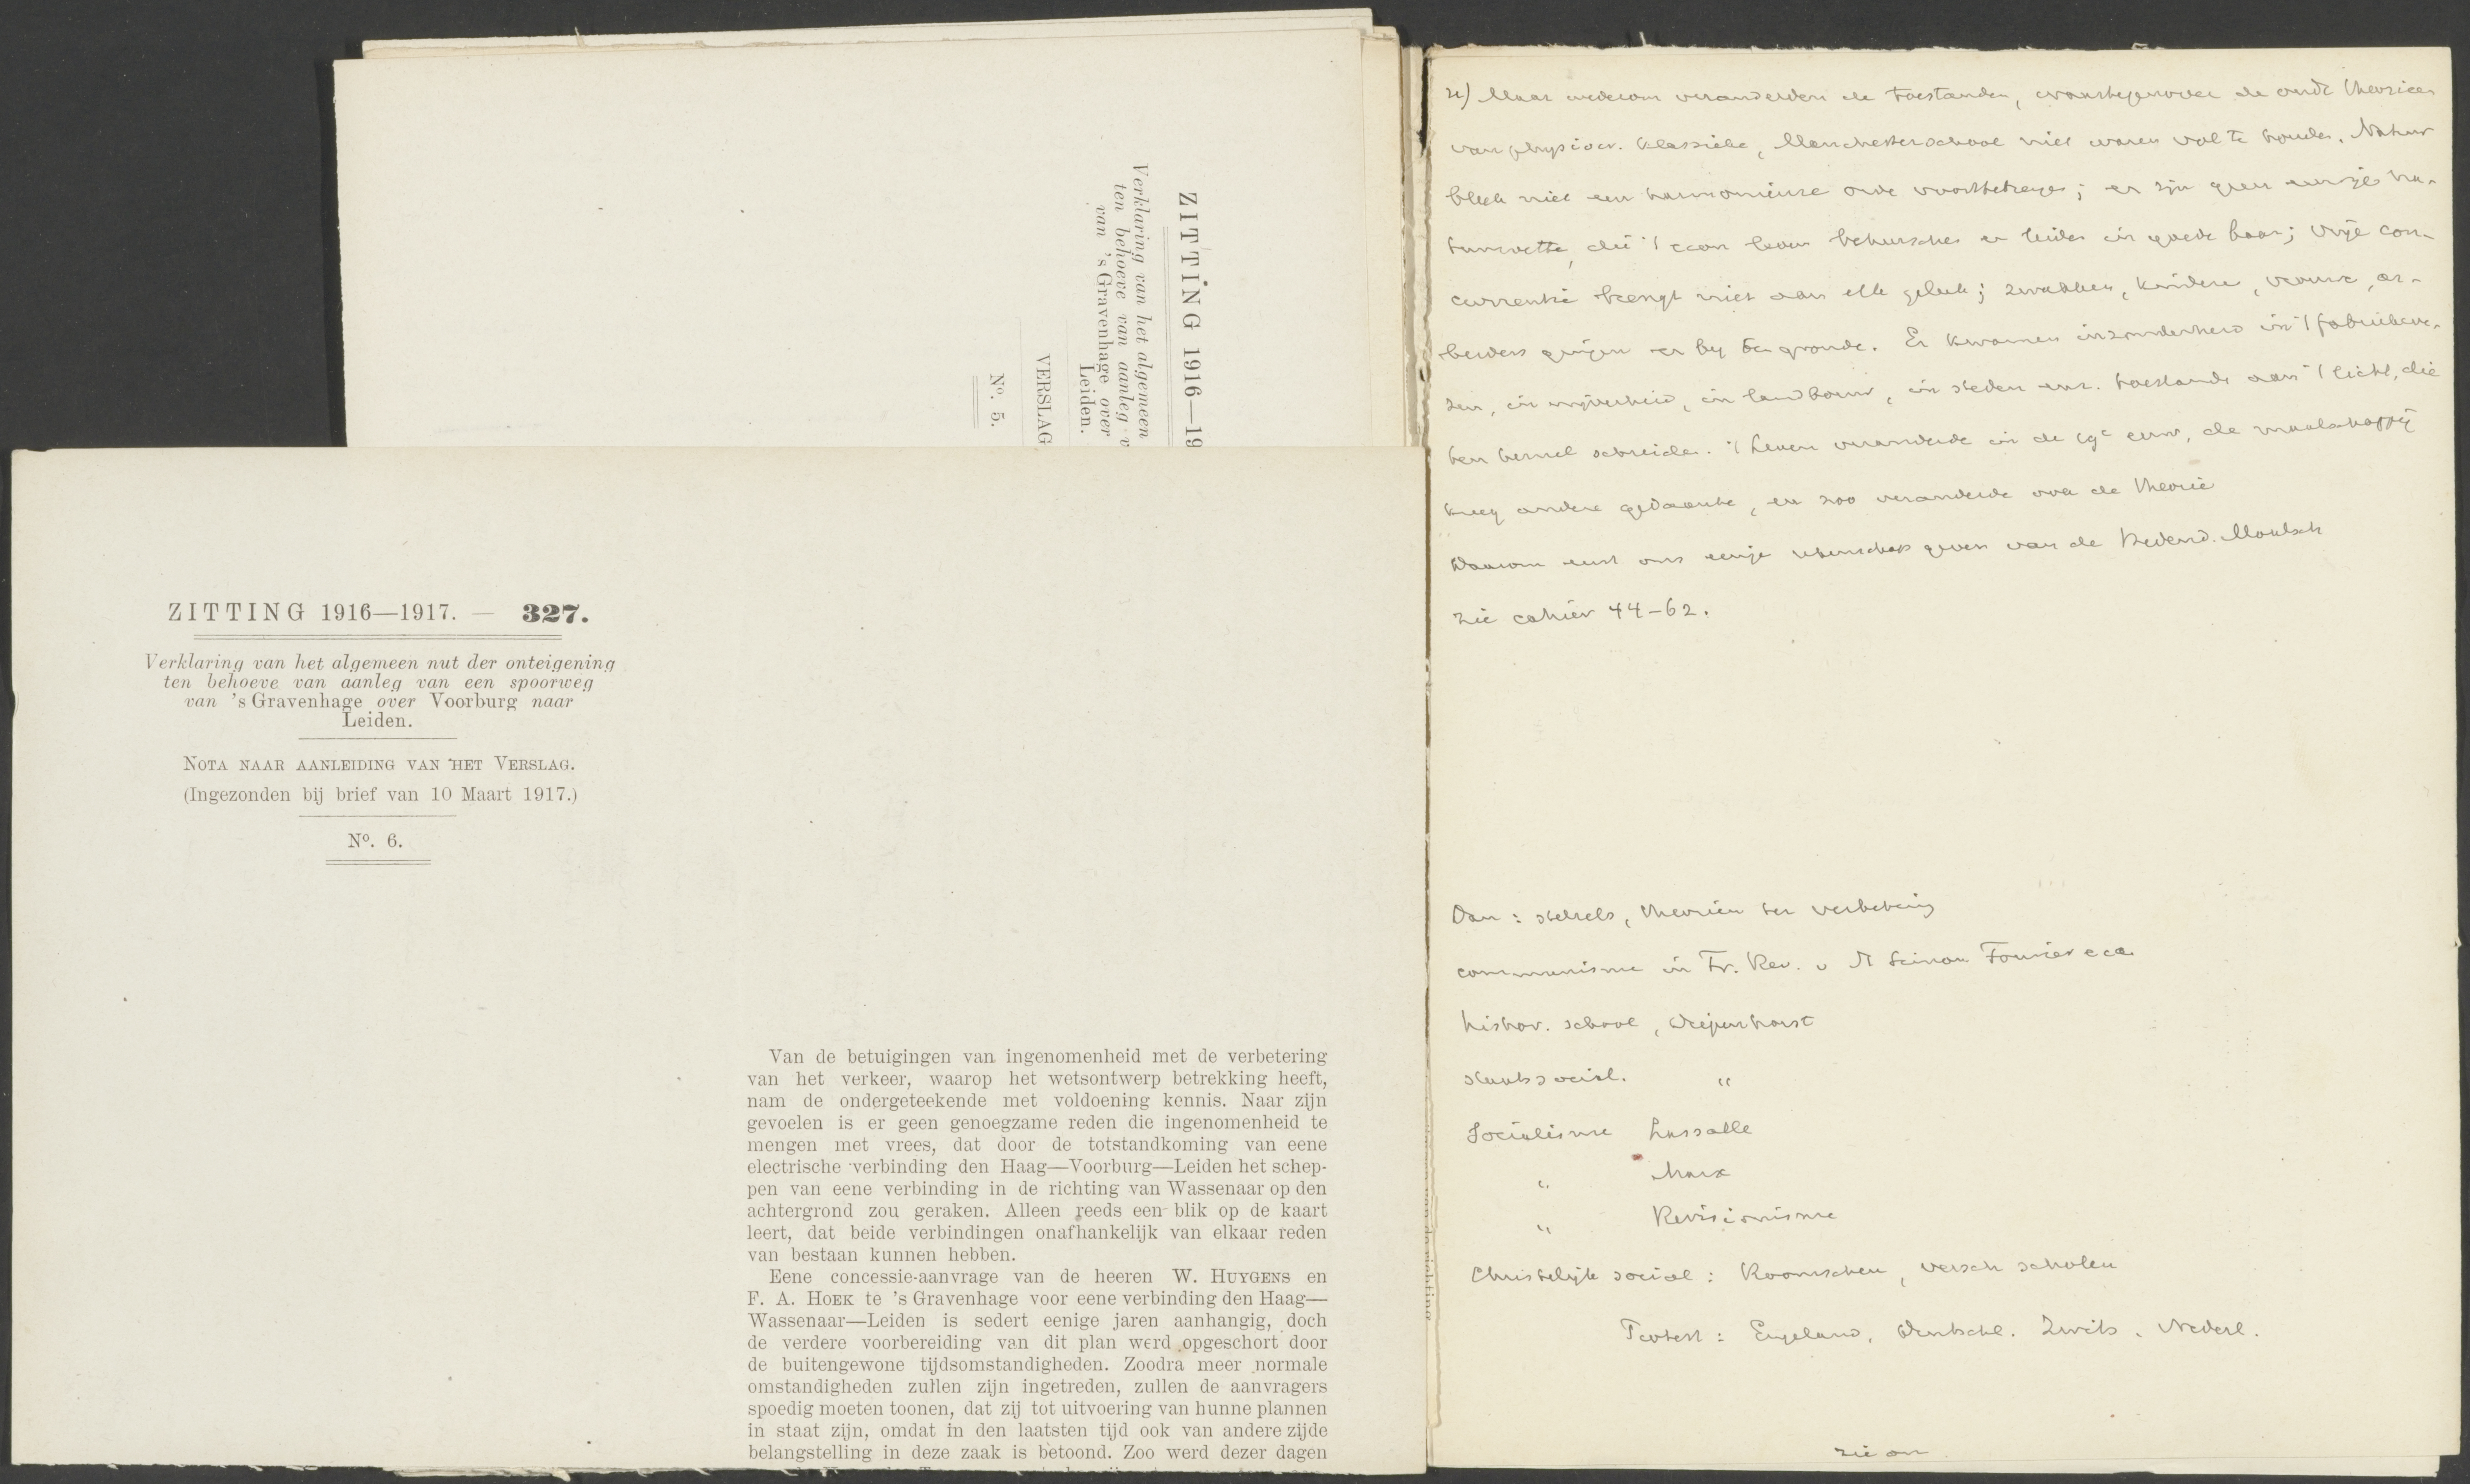 ZITTING 1916—19
Verklaring van het algemeen
ten behoeve van aanleg v
van 's Gravenhage over
Leiden.
VERSLAG
Nº. 5.
ZITTING 1916—1917. — 327.
Verklaring van het algemeen nut der onteigening
ten behoeve van aanleg van een spoorweg
van 's Gravenhage over Voorburg naar
Leiden.
NOTA NAAR AANLEIDING VAN HET VERSLAG.
(Ingezonden bij brief van 10 Maart 1917.)
Nº. 6.
Van de betuigingen van ingenomenheid met de verbetering
van het verkeer, waarop het wetsontwerp betrekking heeft,
nam de ondergeteekende met voldoening kennis. Naar zijn
gevoelen is er geen genoegzame reden die ingenomenheid te
mengen met vrees, dat door de totstandkoming van eene
electrische verbinding den Haag—Voorburg—Leiden het schep-
pen van eene verbinding in de richting van Wassenaar op den
achtergrond zou geraken. Alleen reeds een blik op de kaart
leert, dat beide verbindingen onafhankelijk van elkaar reden
van bestaan kunnen hebben.
Eene concessie-aanvrage van de heeren W. HUYGENS en
F. A. HOEK te 's Gravenhage voor eene verbinding den Haag—
Wassenaar—Leiden is sedert eenige jaren aanhangig, doch
de verdere voorbereiding van dit plan werd opgeschort door
de buitengewone tijdsomstandigheden. Zoodra meer normale
omstandigheden zullen zijn ingetreden, zullen de aanvragers
spoedig moeten toonen, dat zij tot uitvoering van hunne plannen
in staat zijn, omdat in den laatsten tijd ook van andere zijde
belangstelling in deze zaak is betoond. Zoo werd dezer dagen
Maar wederom veranderden de toestanden, waartegenover de oude theorieen
van physiocr. klassieke, Manchesterschool niet waren vol te houden. Natuur
bleek niet een harmonieuze orde voorttebrengen; er zijn geen eeuwige na-
tuurwetten, die 't econ leven beheerschen en leiden in goede baan; vrije con-
currentie brengt niet aan elk geluk; zwakken, kinderen, vrouwen, ar-
beiders gingen er bij te gronde. Er kwamen inzonderheid in 't fabriekswe-
zen, in nijverheid, in landbouw, in steden enz. toestanden aan 't licht, die
ten hemel schreiden. 't Leven veranderde in de 19e eeuw, de maatschappij
kreeg andere gedaante, en zoo veranderde ook de theorie
Daarom eerst ons eenige rekenschap geven van de hedend. Maatsch
zie cahier 44-62.
Dan: stelsels, theorieën ter verbetering
communisme in Fr. Rev. v St Simon Fourier
histor. school, Diepenhorst
staatssocial. "
Socialisme Lassalle
" Marx
" Revisionisme
Christelijk sociaal: Roomschen, versch scholen
Protest: Engeland, Deutschl. Zwits. Nederl.